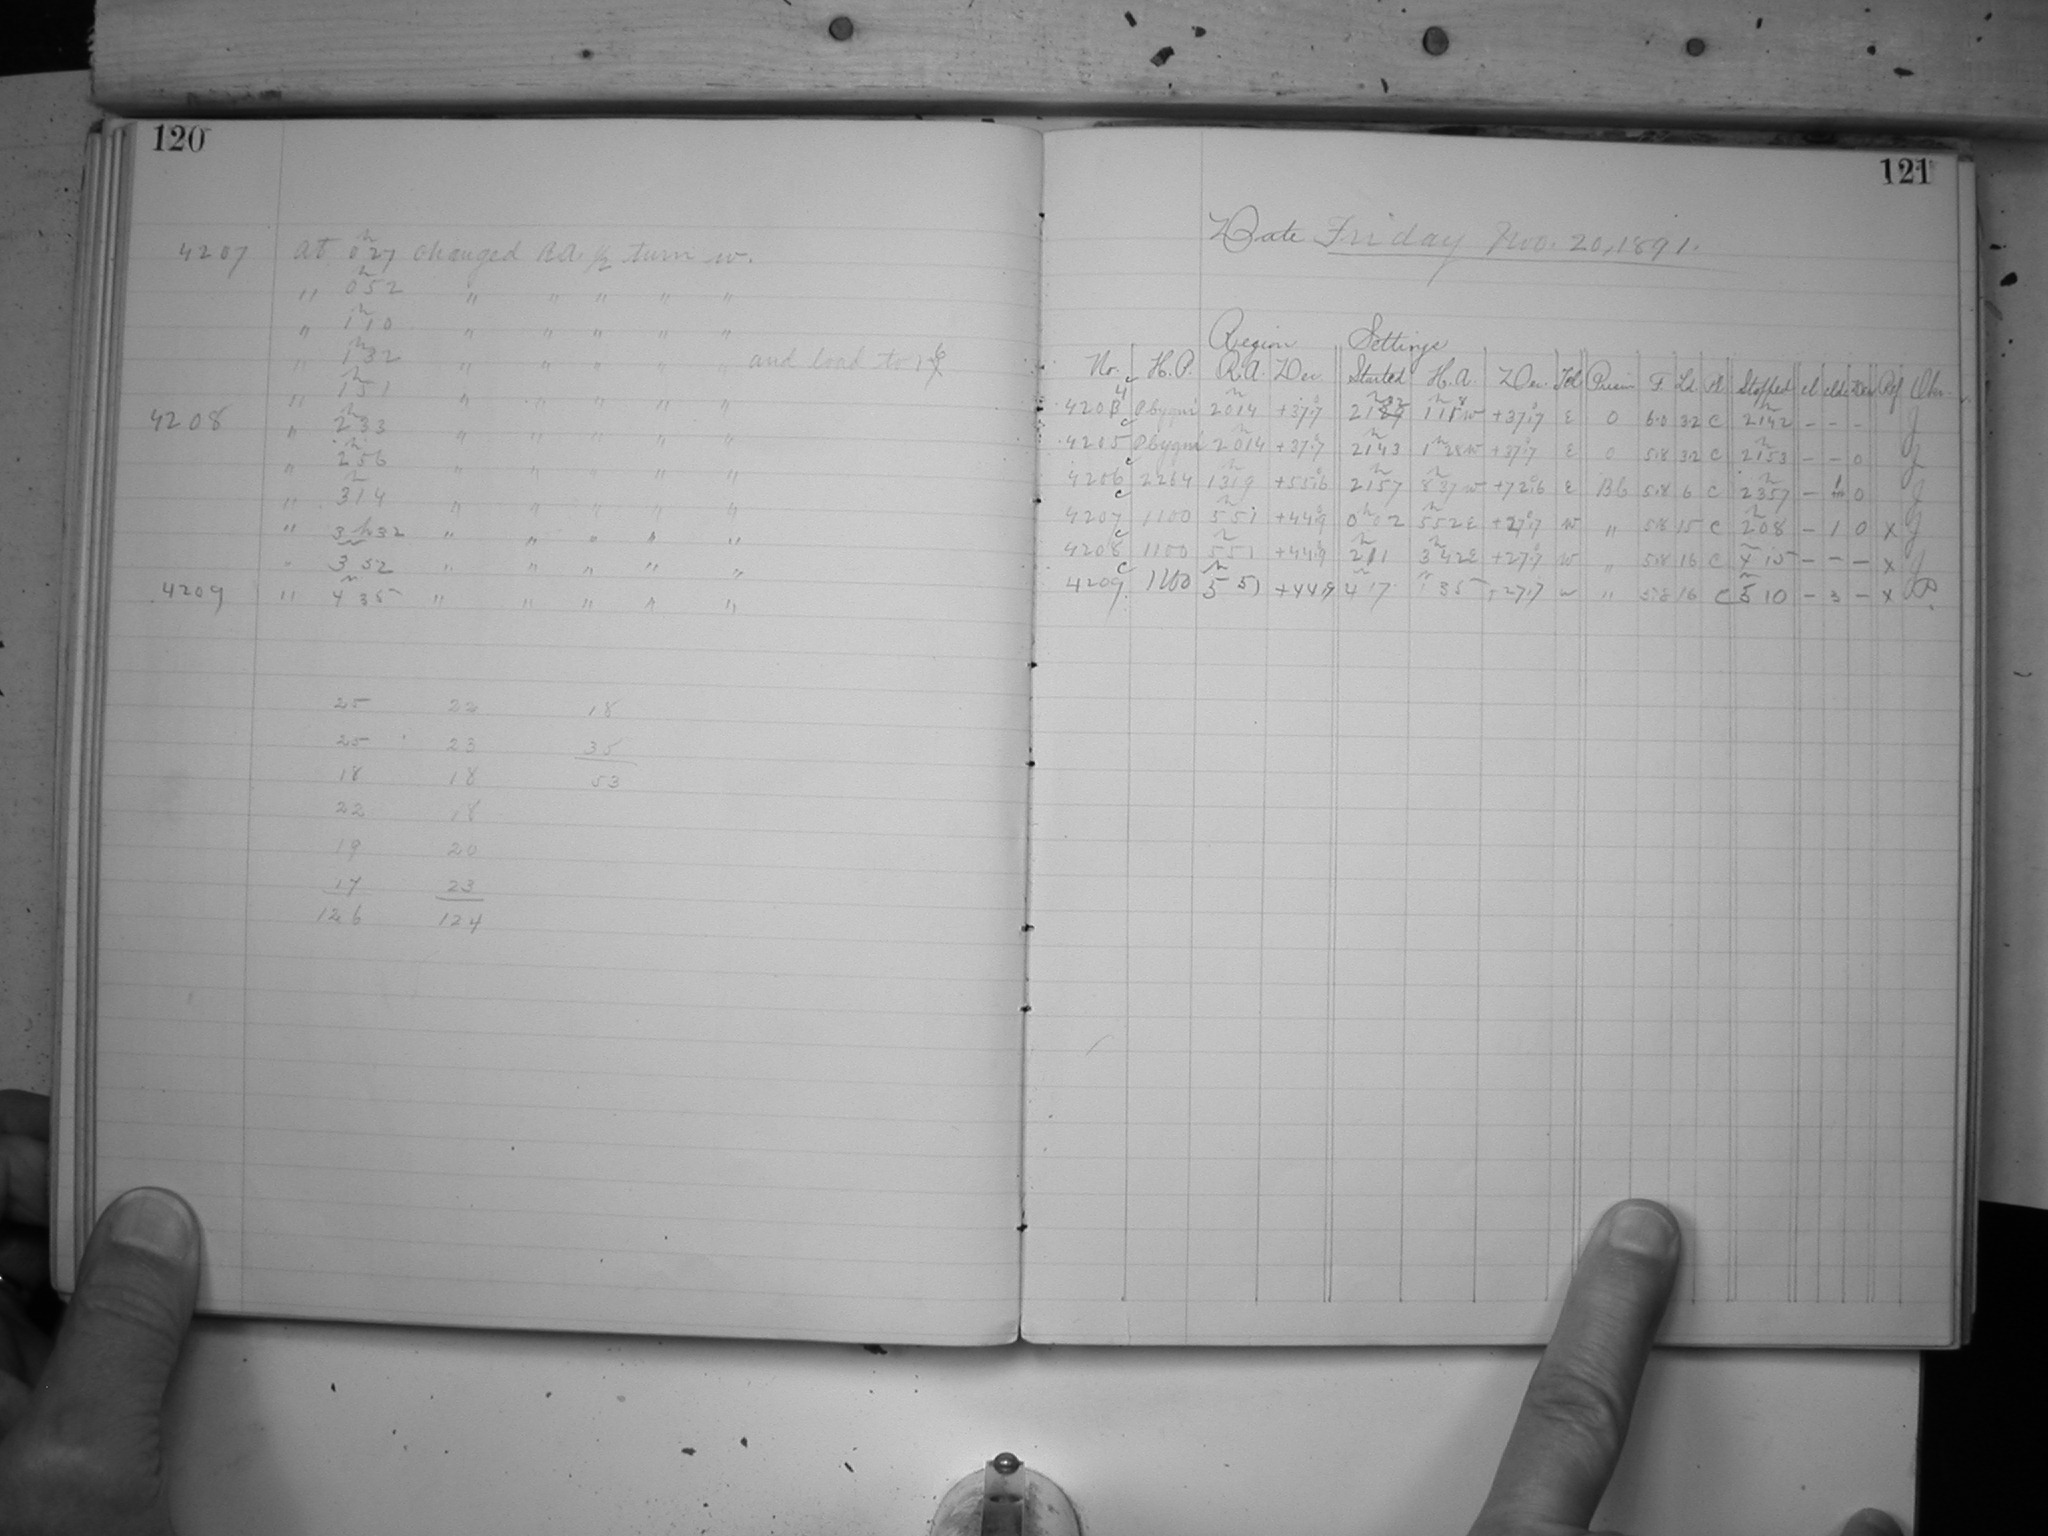 120
4207 At 0h27 changed R.A. 1/2 turn w.
" 0h52 " " " " "
" 1h10 " " " " "
" 1h32 " " " " " and load to 16
" 1h51 " " " " "
4208 " 2h33 " " " " "
" 2h56 " " " " "
" 3h14 " " " " "
" 3h32 " " " " "
" 3h52 " " " " "
4209 " 4h35 " " " " "
25 22 18
25 23 35
18 18 53
22 18
19 20
17 23
126 124
121
Date Friday Nov. 20, 1891.
Region Settings
No. H.P. R.A. Dec. Started H.A. Dec. Tel Prism F. Ld. Pl Stopped Cl Clds Dew Ref Obs.
C4204 P Cygni 20h14 +37°.7 21h32 1h18w +37°.7 E 0 6.0 32 C 21h42 - - - J
C4205 P Cygni 20h14 +37°.7 21h43 1h28w +37°.7 E 0 5.8 32 C 21h53 - - 0 J
C4206 2264 13h19 +55°.6 21h57 8h37w +72°.6 E Bb 5.8 6 C 23h57 - 0 J
C4207 1100 5h51 +44°.9 0h02 5h52E +27°.7 w " 5.8 15 C 2h08 - 1 0 x J
C4208 1100 5h51 +44°.9 2h11 3h42E +27°.7 w " 5.8 16 C 4h15 - - - x J
C4209 1100 5h51 +44.9 4h17 1h35 +27.7 w " 5.8 16 C 5h10 - 3 - x